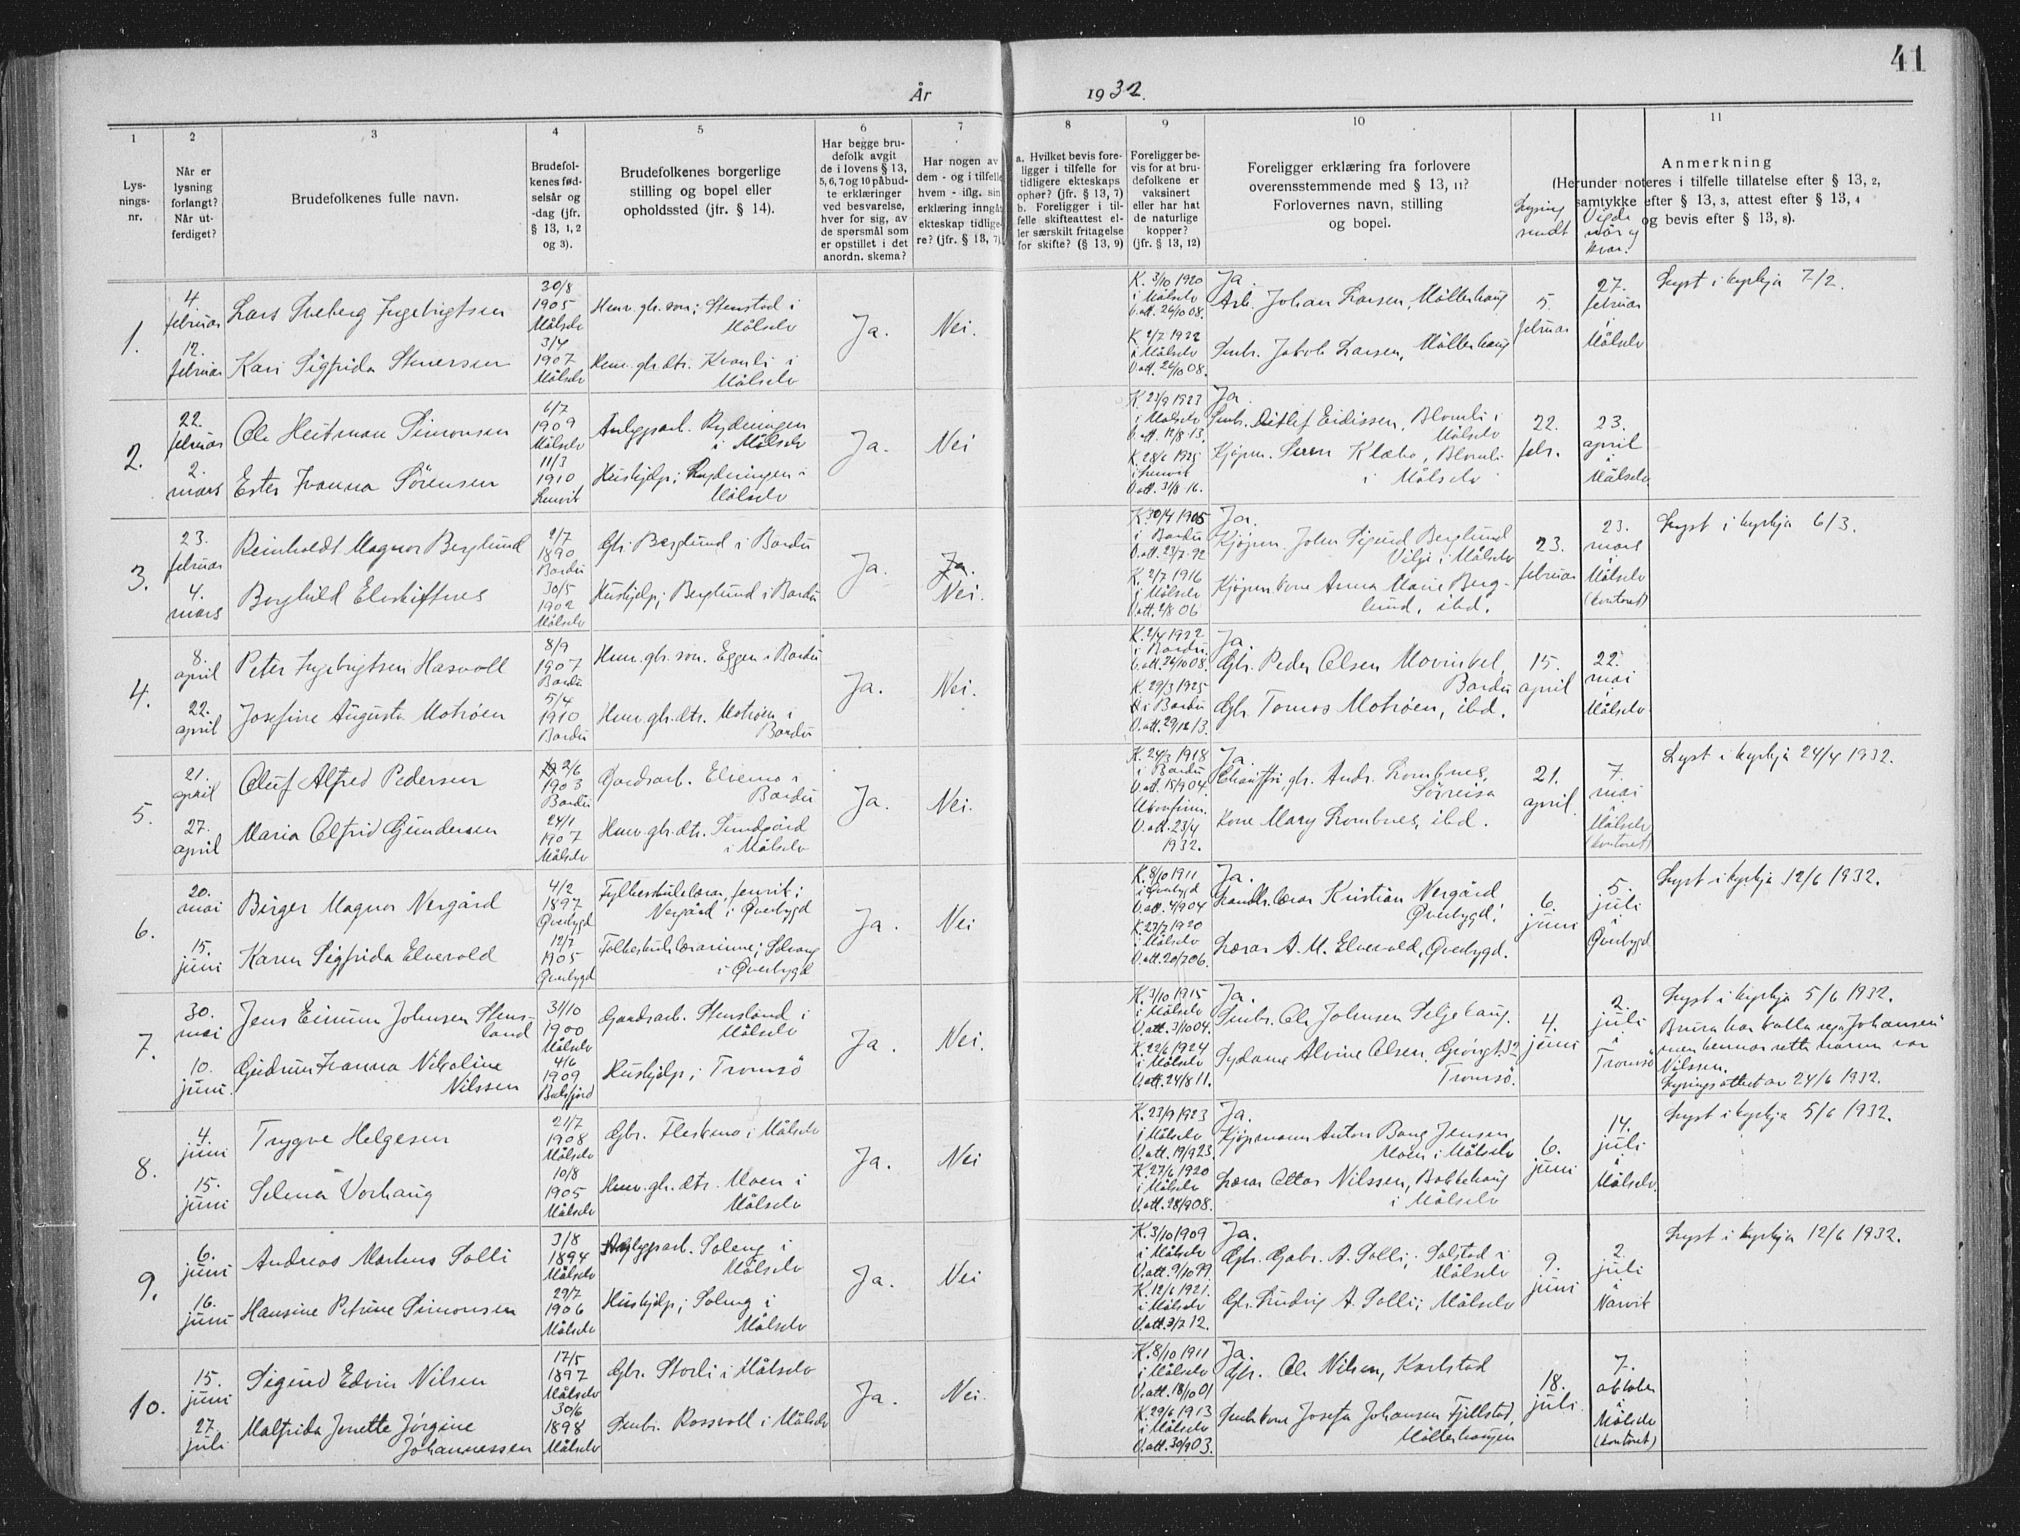 41
År 1932.
1
2
3
4
5
6
7
8
9
10
11
Lys-
nings-
nr.
Når er
lysning
forlangt?
Når ut-
ferdiget?
Brudefolkenes fulle navn.
Brudefol-
kenes fød-
selsår og
-dag (jfr.
§ 13, 1, 2
og 3).
Brudefolkenes borgerlige
stilling og bopel eller
opholdssted (jfr. § 14).
Har begge bru-
defolk avgit
de i lovens § 13,
5, 6, 7 og 10 påbud-
te erklæringer
ved besvarelse,
hver for sig, av
de spørsmål som
er opstillet i det
anordn. skema?
Har nogen av
dem - og i tilfelle
hvem - iflg. sin
erklæring inngåt
ekteskap tidlige-
re? (jfr. § 13, 7).
a. Hvilket bevis fore-
ligger i tilfelle for
tidligere ekteskaps
ophør? (jfr. § 13, 7)
b. Foreligger i til-
felle skifteattest el-
ler særskilt fritagelse
for skifte? (§ 13, 9)
Foreligger be-
vis for at bru-
defolkene er
vaksinert
eller har hat
de naturlige
kopper?
(jfr. § 13, 12)
Foreligger erklæring fra forlovere
overensstemmende med § 13, 11?
Forlovernes navn, stilling
og bopel.
Lysing
sendt
Vigde
når og
kvar?
Anmerkning
(Herunder noteres i tilfelle tillatelse efter § 13, 2,
samtykke efter § 13, 3, attest efter § 13, 4
og bevis efter § 13, 8).
1.
4.
februar
12.
februar
Lars Sveberg Ingebrigtsen
Kari Sigfrida Stenersen
30/8
1905
Målselv
3/4
1907
Målselv
Hmv. gbr. son; Stenstad i
Målselv
Hmv. gbr. dtr. Kvamli i
Målselv
Ja.
Nei.
K. 3/10 1920
i Målselv
V.att. 26/10 08.
K. 2/7 1922
i Målselv
V.att. 26/10 08.
Ja.
Arb. Johan Larsen, Målterhaug
Småbr. Jakob Larsen, Målterhaug
5.
februar
27.
februar
i
Målselv
Lyst i kyrkja 7/2.
2.
22.
februar
2.
mars
Ole Heitman Simonsen
Ester Ivanna Sørensen
6/7
1909
Målselv
11/3
1910
Lenvik
Anleggsarb. Rydningen
i Målselv
Hushjelp; Rydningen i
Målselv
Ja.
Nei
K 23/9 1923
i Målselv
V.att. 12/8 13.
K. 28/6 1925
i Lenvik
V.att. 31/8 16.
Ja.
Småbr. Detlef Eidissen, Blomli i
Målselv
Kjøpm. Søren Klæbo, Blomli
i Målselv
22.
febr.
23.
april
i
Målselv
3.
23.
februar
4.
mars
Reinholdt Magnor Berglund
Borghild Elvskiftnes
2/7
1890
Bardu
30/5
1902
Målselv
Gbr. Berglund i Bardu
Hushjelp; Berglund i Bardu
Ja.
Ja.
Nei.
K. 30/4 1905
i Bardu
V.att. 23/7 92
K. 2/7 1916
i Målselv
V.att. 2/8 06
Ja.
Kjøpm. John Sigurd Berglund
Vilje i Målselv
Kjøpm.kone Anna Marie Berg-
lund, ibd.
23.
februar
23.
mars
i
Målselv
(kontoret)
Lyst i kyrkja 6/3.
4.
8.
april
22.
april
Peter Ingebrigtsen Hasvoll
Josefine Augusta Motrøen
8/9
1907
Bardu
5/4
1910
Bardu
Hmv. gbr. son. Eggen i Bardu
Hmv. gbr. dtr. Motrøen i
Bardu
Ja.
Nei.
K. 2/4 1922
i Bardu.
V.att. 26/10 08.
K. 29/3 1925
i Bardu
V.att. 29/12 13.
Ja.
Gbr. Peder Olsen Movinkel,
Bardu
Gbr. Tomas Motrøen, ibd.
15.
april
22.
mai
i
Målselv.
5.
21.
april
27.
april
Oluf Alfred Pedersen
Maria Alfrid Gundersen
2/6
1903
Bardu
24/1
1907
Målselv
Gardsarb. Elvemo i
Bardu
Hmv. gbr. dtr. Sundgård
i Målselv
Ja.
Nei.
K. 24/3 1918
i Bardu
V.att. 15/9 04.
Ukonfirm.
V.att. 23/4
1932.
Ja.
Chauffør, gbr. Andr. Lombnes,
Sørreisa
Kone Mary Lombnes, ibd.
21.
april.
7.
mai
i
Målselv
(kontoret)
Lyst i kyrkja 24/4 1932.
6.
20.
mai
15.
juni
Birger Magnor Nergård
Karen Sigfrida Elvevold
4/2
1897
Øverbygd
12/7
1905
Øverbygd
Fylkesskulelærar, Jenvik;
Nergård i Øverbygd
Folkeskulelærarinne; Solvang
i Øverbygd
Ja.
Nei
K. 8/10 1911
i Øverbygd
V.att. 4/9 04
K. 27/7 1920
i Målselv
V.att. 20/7 06.
Ja.
Landbr. lærar Kristian Nergård
Øverbygd;
Lærar A. M. Elvevold, Øverbygd.
6.
juni
5.
juli
i
Øverbygd
Lyst i kyrkja 12/6 1932.
7.
30.
mai
10.
juni.
Jens Einum Johnsen Stens-
land
Gudrun Ivanna Nikoline
Nilssen
31/10
1900
Målselv
4/6
1909
Balsfjord
Gardsarb. Stensland i
Målselv
Hushjelp; Tromsö
Ja.
Nei.
K. 3/10 1915
i Målselv
V.att. 3/10 04.
K. 22/6 1924
i Målselv
V.att. 24/8 11.
Ja.
Småbr. Ole Johnsen Seljehaug.
Sydame Alvine Olsen. Grønngt. 32
Tromsö.
4.
juni
2.
juli
i
Tromsö
Lyst i kyrkja 5/6 1932.
Brura har kalla seg "Johansen"
men hennar rette namn var
Nilssen.
Lysingsattest av 24/6 1932.
8.
4.
juni
15.
juni
Trygve Helgesen
Selena Vorhaug
21/7
1908
Målselv
10/8
1905
Målselv
Gbr. Fleskmo i Målselv
Hmv. gbr. dtr. Moen i
Målselv
Ja.
Nei
K. 23/9 1923
i Målselv
V.att. 19/9 23.
K. 27/6 1920
i Målselv
V.att. 28/9 08.
Ja.
Kjøpmann Anton Bang Jensen
Moen i Målselv
Lærar Ottar Nilssen, Bakkehaug
i Målselv
6.
juni
14.
juli
i
Målselv.
Lyst i kyrkja 5/6 1932.
9.
6.
juni
16.
juni
Andreas Martens Solli
Hansine Petrine Simonsen
3/8
1894
Målselv
29/7
1906
Målselv
Anleggsarb. Soleng i
Målselv
Hushjelp; Soleng i
Målselv
Ja.
Nei
K. 3/10 1909
i Målselv
V.att. 9/10 99.
K. 12/6 1921.
i Målselv
V.att. 3/7 12.
Ja.
Gbr. Gabr. A. Solli; Solstad i
Målselv
Gbr. Ludvig A. Solli; Målselv
9.
juni
2.
juli
i
Narvik
Lyst i kyrkja 12/6 1932.
10.
15.
juni
27.
juli
Sigurd Edvin Nilsen
Malfrida Jenette Jørgine
Johannessen
17/5
1897
Målselv
30/6
1898
Målselv
Gbr. Storli i Målselv
Småbr. Rossvoll i Målselv
Ja.
Nei.
K. 8/10 1911
i Målselv
V.att. 18/10 01
K. 29/6 1913
i Målselv
V.att. 30/9 03.
Ja.
Gbr. Ole Nilsen, Karlstad
Småbr.kone Josefa Johansen Fjellstad,
Målterhaugen
18.
juli.
7.
oktober
i
Målselv
(kontoret)